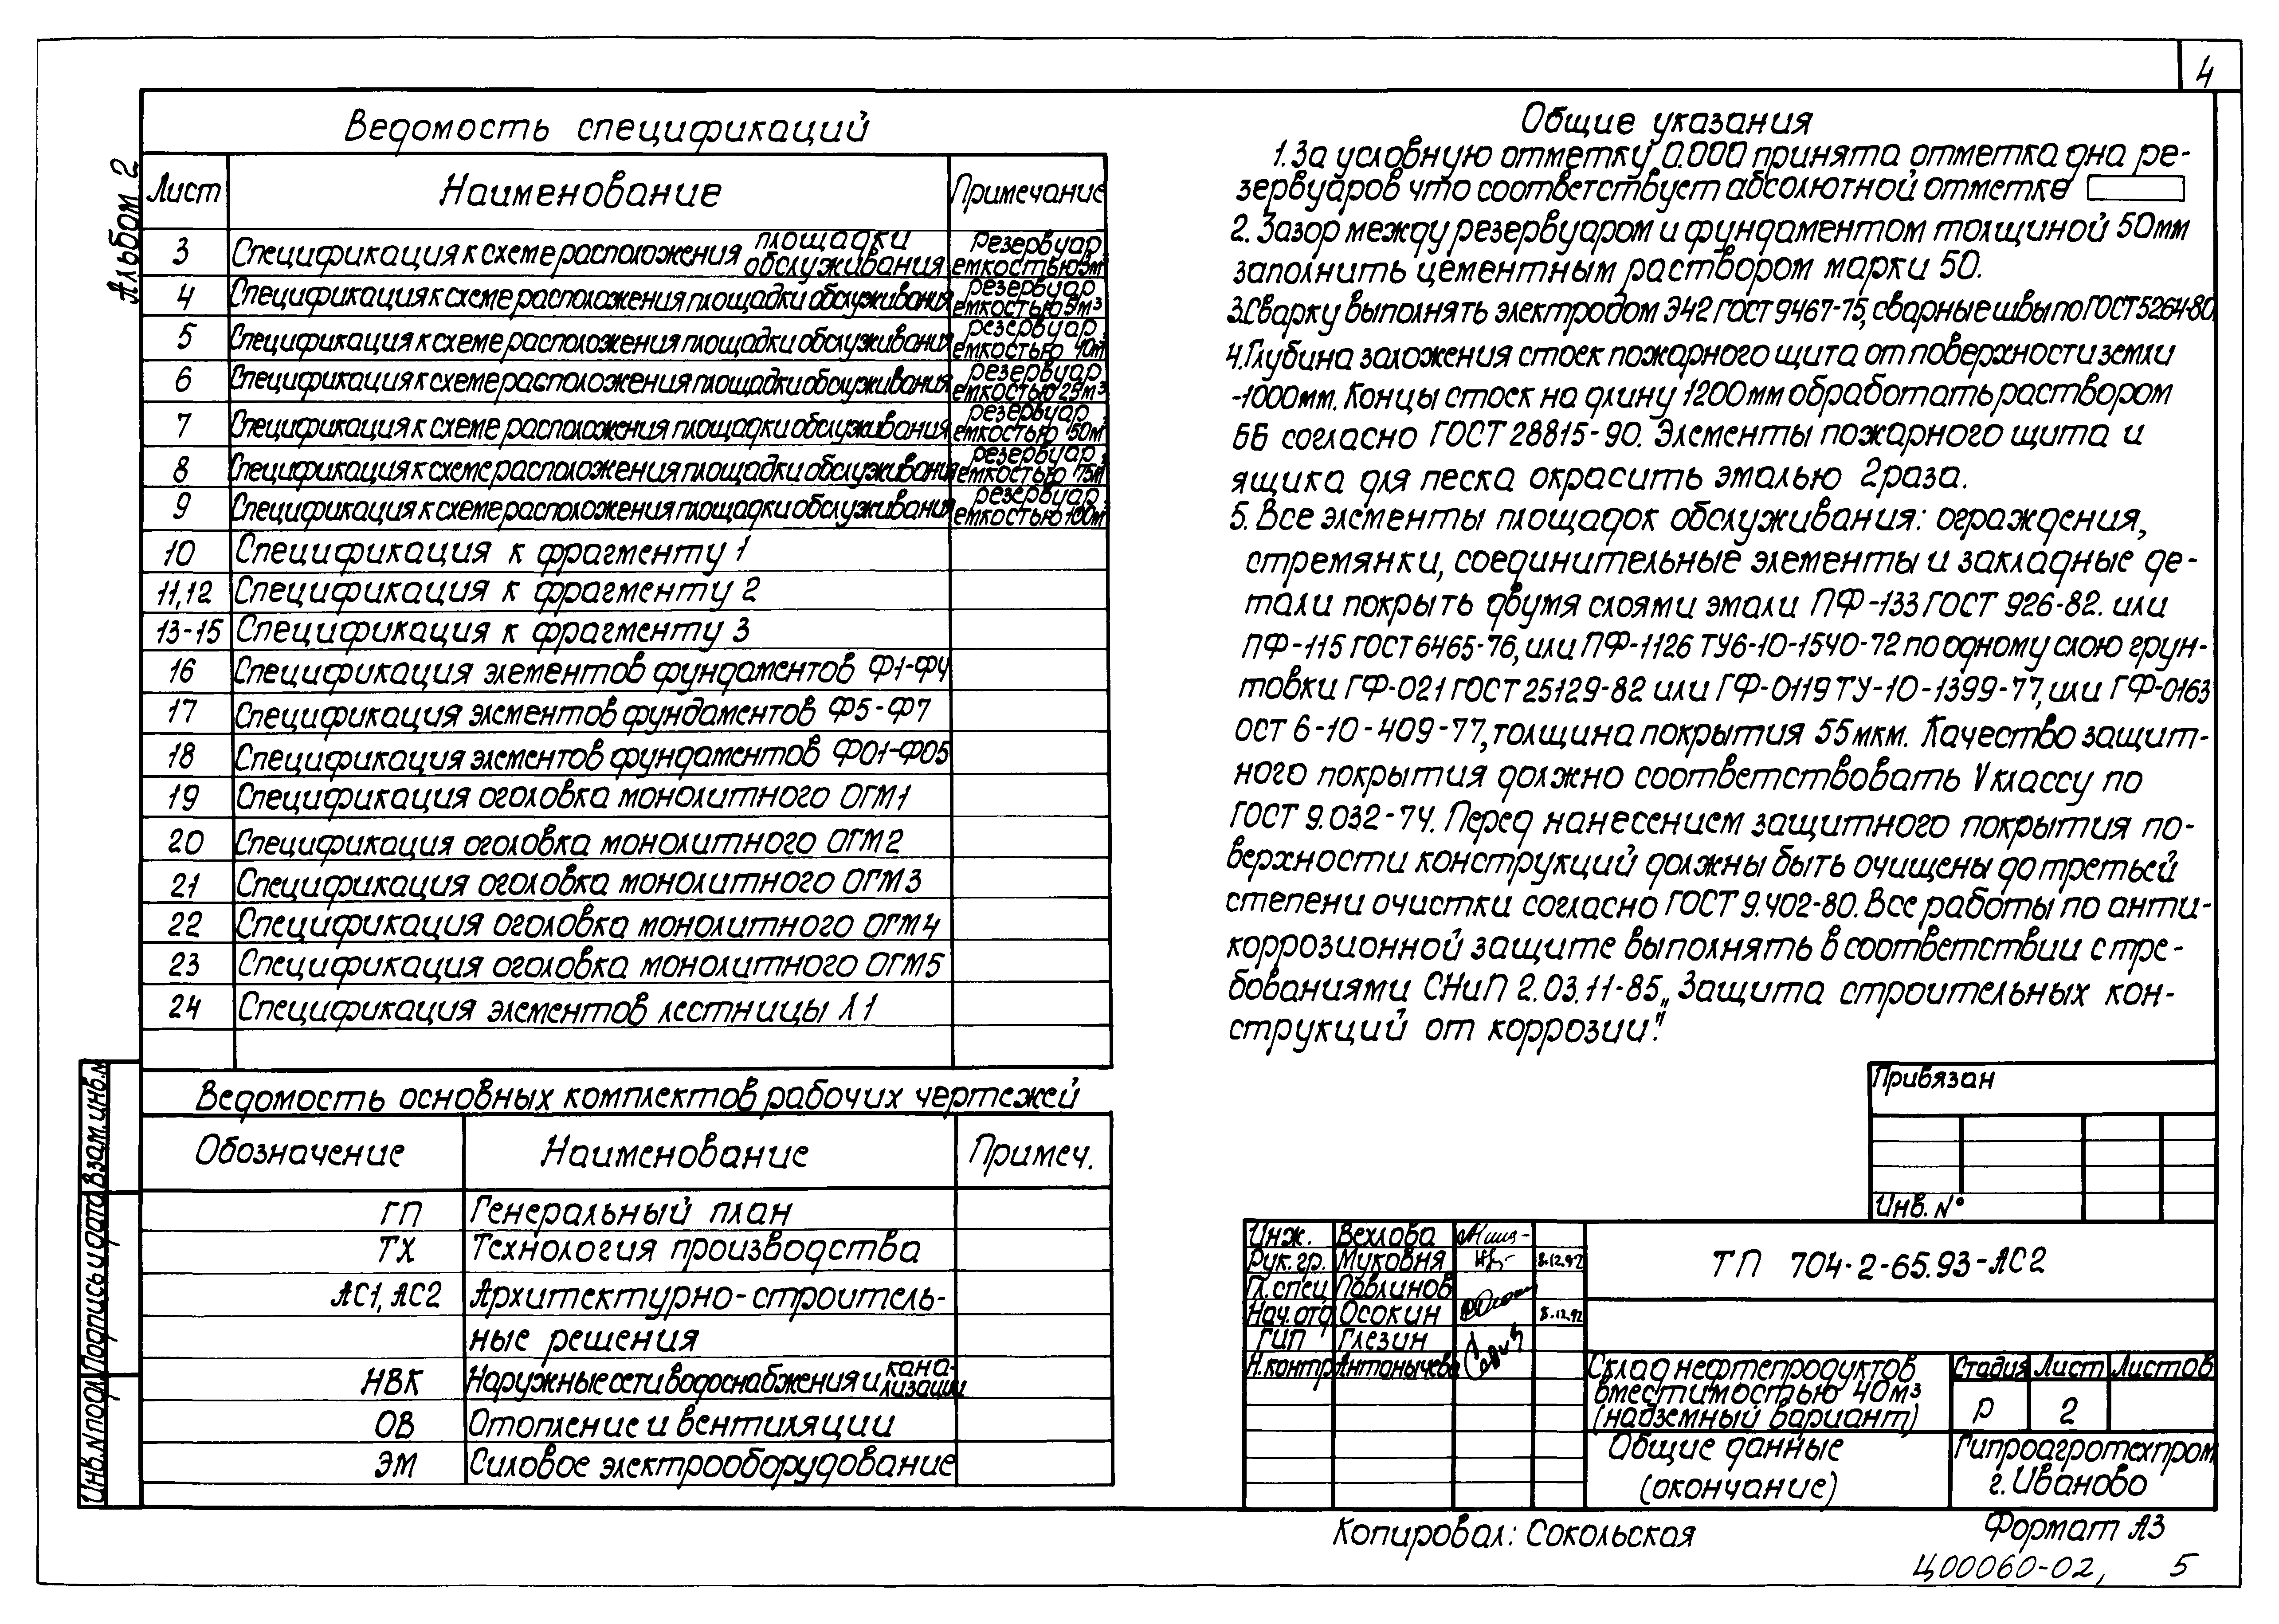 4
Альбом 2
Ведомость спецификаций
Лист Наименование Примечание
3 Спецификация к схеме расположения площадки обслуживания резервуар емкостью 3м³
4 Спецификация к схеме расположения площадки обслуживания резервуар емкостью 5м³
5 Спецификация к схеме расположения площадки обслуживания резервуар емкостью 10м³
6 Спецификация к схеме расположения площадки обслуживания резервуар емкостью 25м³
7 Спецификация к схеме расположения площадки обслуживания резервуар емкостью 50м³
8 Спецификация к схеме расположения площадки обслуживания резервуар емкостью 75м³
9 Спецификация к схеме расположения площадки обслуживания резервуар емкостью 100м³
10 Спецификация к фрагменту 1
11,12 Спецификация к фрагменту 2
13-15 Спецификация к фрагменту 3
16 Спецификация элементов фундаментов Ф1-Ф4
17 Спецификация элементов фундаментов Ф5-Ф7
18 Спецификация элементов фундаментов Ф01-Ф05
19 Спецификация оголовка монолитного ОГМ1
20 Спецификация оголовка монолитного ОГМ2
21 Спецификация оголовка монолитного ОГМ3
22 Спецификация оголовка монолитного ОГМ4
23 Спецификация оголовка монолитного ОГМ5
24 Спецификация элементов лестницы Л1
Ведомость основных комплектов рабочих чертежей
Обозначение Наименование Примеч.
ГП Генеральный план
ТХ Технология производства
АС1, АС2 Архитектурно-строитель-
ные решения
НВК Наружные сети водоснабжения и кана-
лизации
ОВ Отопление и вентиляции
ЭМ Силовое электрооборудование
Взам.инв.№
Подпись и дата
Инв.№подл.
Общие указания
1. За условную отметку 0.000 принята отметка дна ре-
зервуаров что соответствует абсолютной отметке
2. Зазор между резервуаром и фундаментом толщиной 50мм
заполнить цементным раствором марки 50.
3.Сварку выполнять электродом Э42 ГОСТ 9467-75, сварные швы по ГОСТ 5264-80
4.Глубина заложения стоек пожарного щита от поверхности земли
-1000мм. Концы стоек на длину 1200мм обработать раствором
ББ согласно ГОСТ 28815-90. Элементы пожарного щита и
ящика для песка окрасить эмалью 2 раза.
5. Все элементы площадок обслуживания: ограждения,
стремянки, соединительные элементы и закладные де-
тали покрыть двумя слоями эмали ПФ-133 ГОСТ 926-82. или
ПФ-115 ГОСТ 6465-76, или ПФ-1126 ТУ6-10-1540-72 по одному слою грун-
товки ГФ-021 ГОСТ 25129-82 или ГФ-0119 ТУ-10-1399-77, или ГФ-0163
ОСТ 6-10-409-77, толщина покрытия 55мкм. Качество защит-
ного покрытия должно соответствовать V классу по
ГОСТ 9.032-74. Перед нанесением защитного покрытия по-
верхности конструкций должны быть очищены до третьей
степени очистки согласно ГОСТ 9.402-80. Все работы по анти-
коррозионной защите выполнять в соответствии с тре-
бованиями СНиП 2.03.11-85 „Защита строительных кон-
струкций от коррозии".
Привязан
Инв. №
Инж. Вехлова
Рук. гр. Муковня 8.12.92
Гл. спец Павлинов
Нач. отд Осокин 8.12.92
ГИП Глезин
Н.контр Антонычева
ТП 704-2-65.93-АС2
Склад нефтепродуктов
вместимостью 40м³
(надземный вариант)
Стадия Лист Листов
Р 2
Общие данные
(окончание)
Гипроагротехпром
г. Иваново
Копировал: Сокольская
Формат А3
Ц00060-02, 5